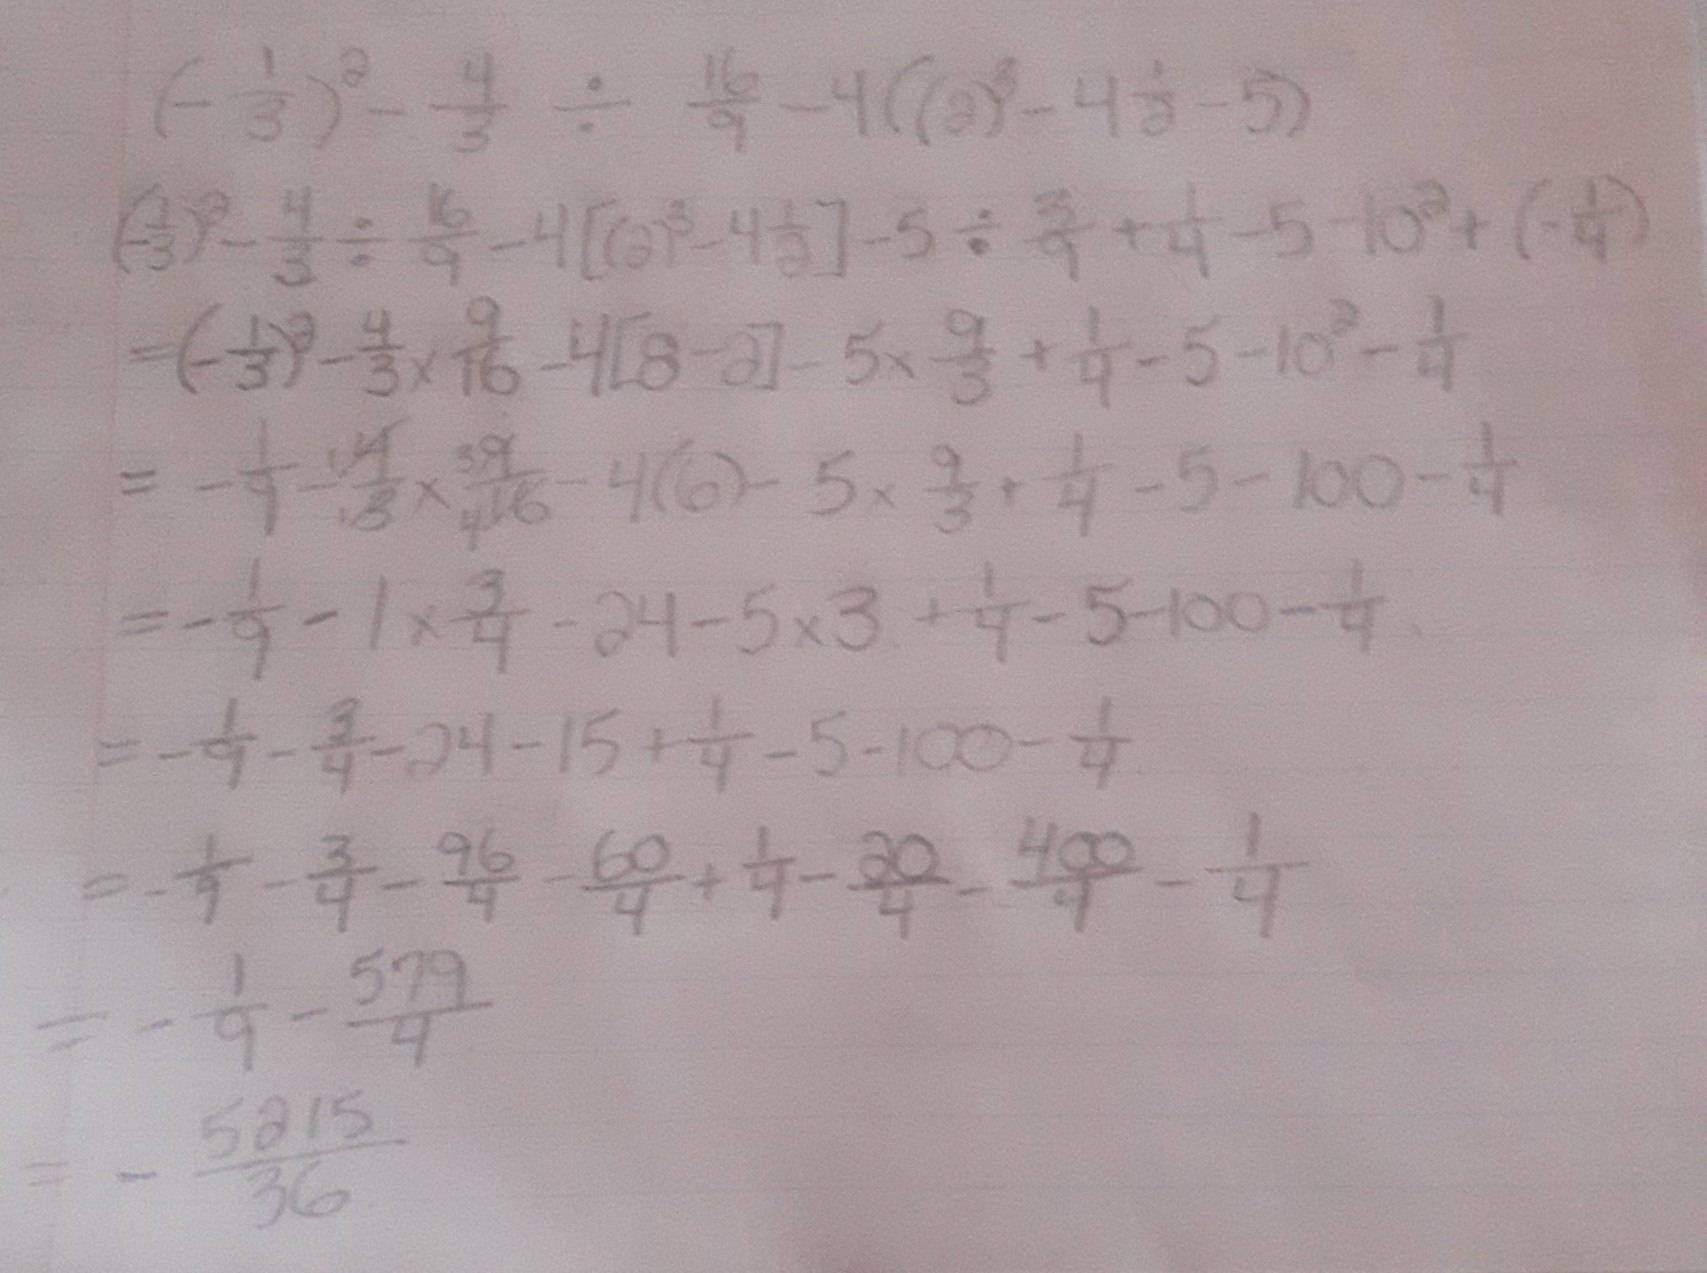 (-1/3)² - 4/3 ÷ 16/9 - 4((2)³ - 4 1/2 - 5)
(-1/3)² - 4/3 ÷ 16/9 - 4[(2)³ - 4 1/2] - 5 ÷ 3/9 + 1/4 - 5 - 10² + (-1/4)
= (-1/3)² - 4/3 × 9/16 - 4[8 - 2] - 5 × 9/3 + 1/4 - 5 - 10² - 1/4
= - 1/9 - 1 4/1 3 × 3 9/4 16 - 4(6) - 5 × 9/3 + 1/4 - 5 - 100 - 1/4
= - 1/9 - 1 × 3/4 - 24 - 5 × 3 + 1/4 - 5 - 100 - 1/4
= - 1/9 - 3/4 - 24 - 15 + 1/4 - 5 - 100 - 1/4
= - 1/9 - 3/4 - 96/4 - 60/4 + 1/4 - 20/4 - 400/4 - 1/4
= - 1/9 - 579/4
= - 5215/36